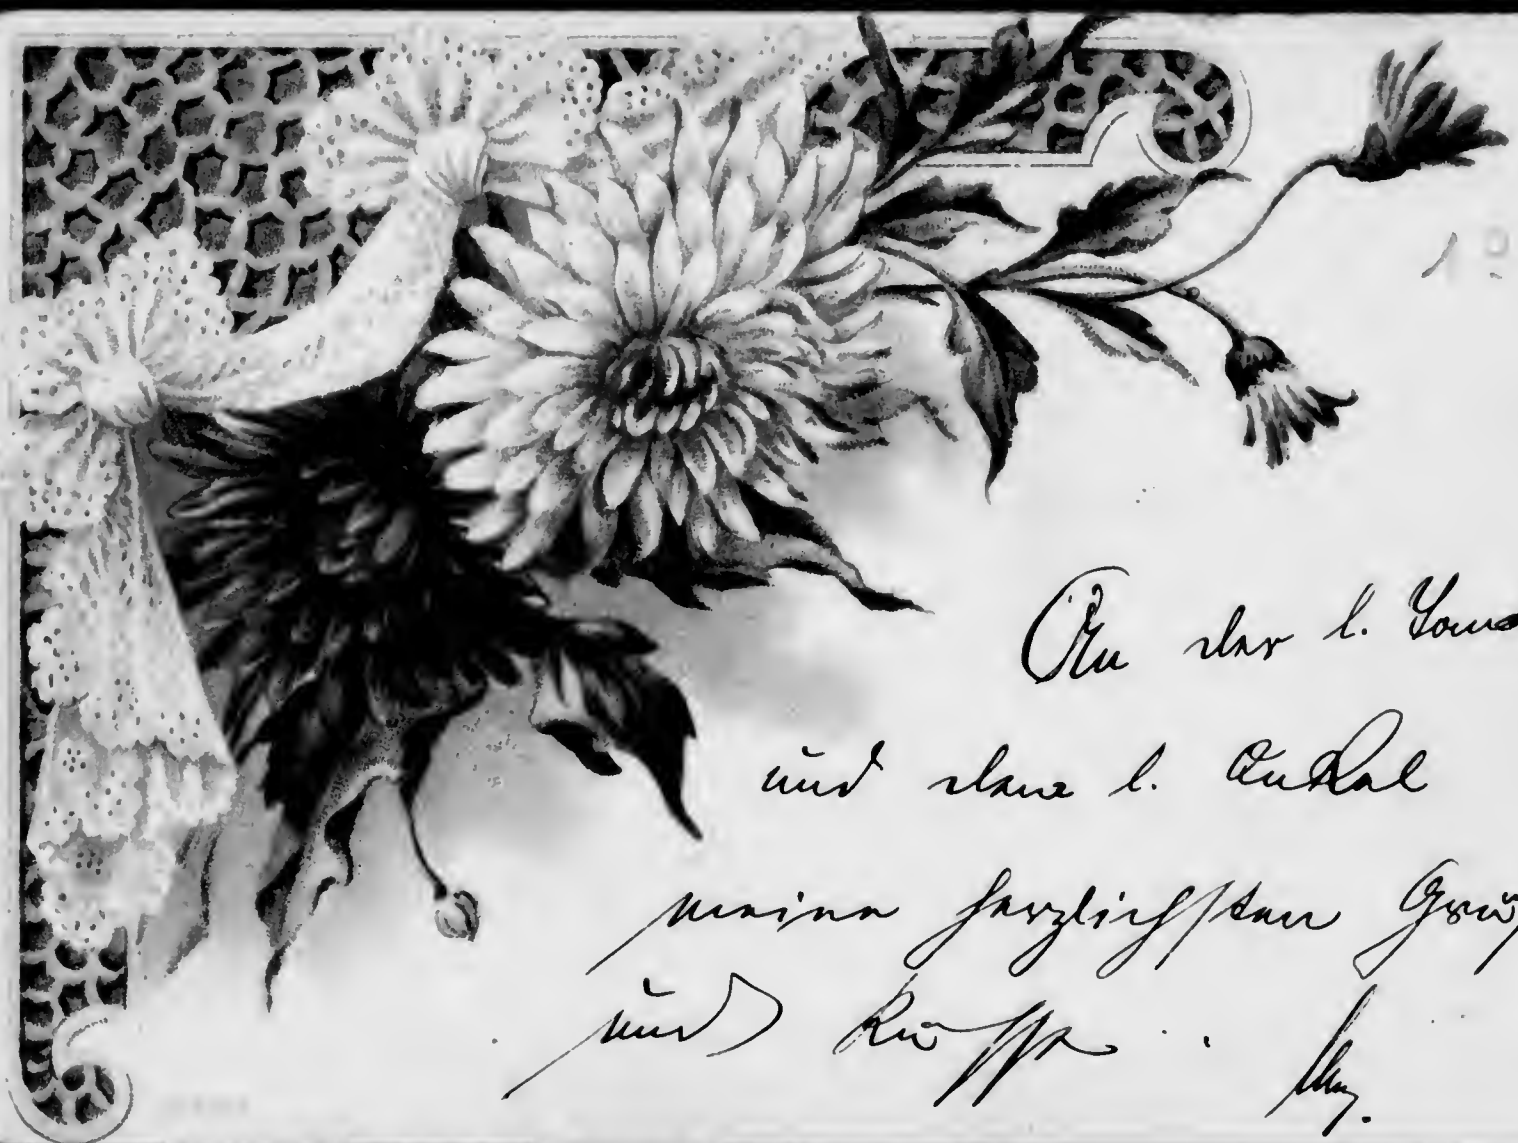 An der l. 
und dem l. Onkel
meine herzlichsten Grüß
und Küsse